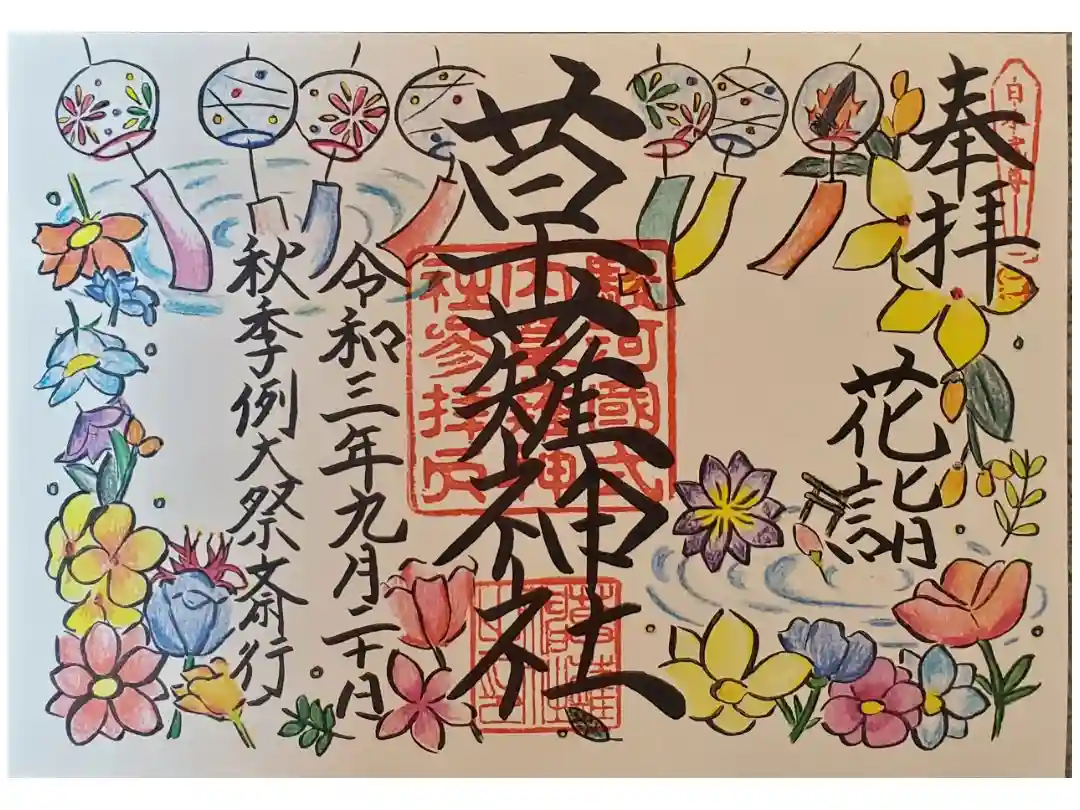 奉拝
花詣
草薙神社
駿河國式
内草薙神
社參拝
令和三年九月二十日
秋季例大祭斎行